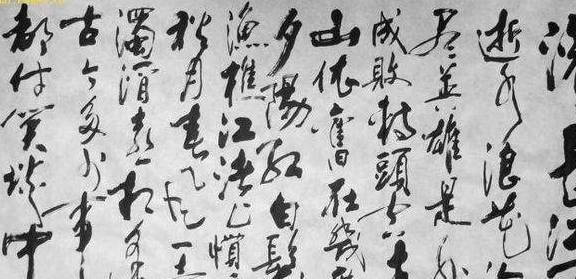 滚长江
逝水浪花
尽英雄是非
成敗轉頭空青
山依舊在幾度
夕陽紅白髮
漁樵江渚上慣
秋月春風一
濁酒喜相逢
古今多少事
都付笑談中